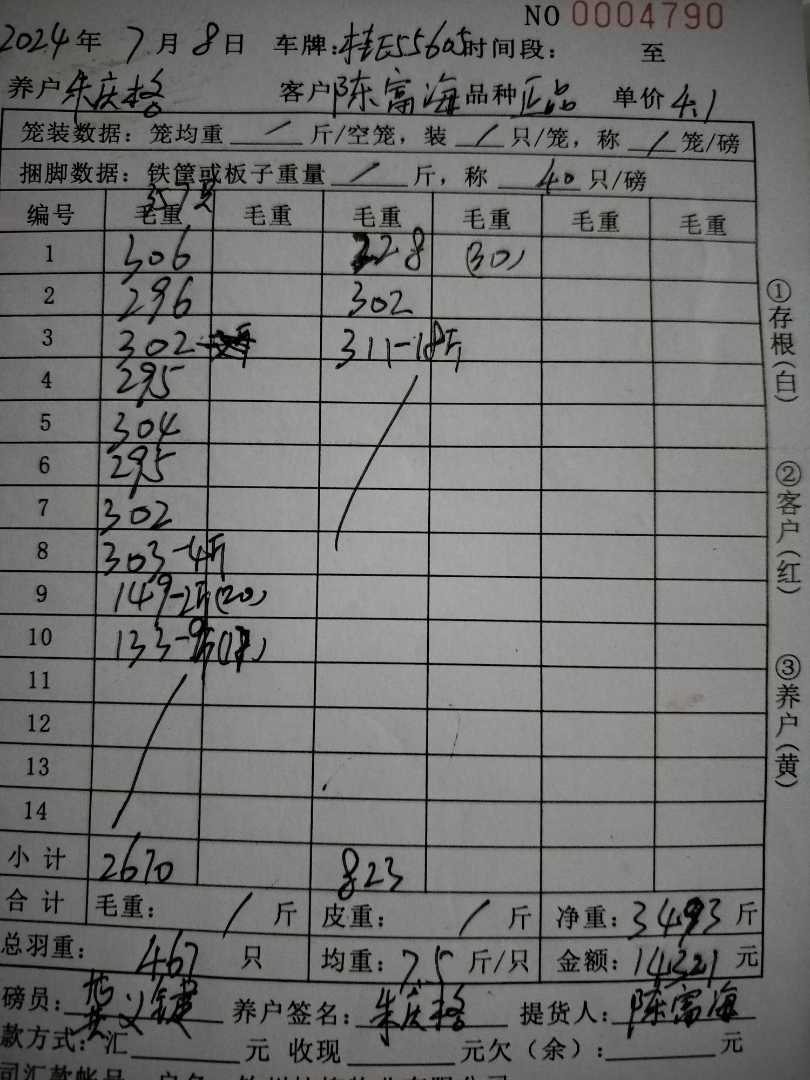 NO 0004790
2024年 7月 8日 车牌:桂E55605时间段: 至
养户朱庆格 客户陈富海 品种正品 单价4.1
笼装数据:笼均重 / 斤/空笼,装 / 只/笼,称 / 笼/磅
捆脚数据:铁筐或板子重量 / 斤,称 40 只/磅
编号 毛重 毛重 毛重 毛重 毛重 毛重
1 306 228 (30)
2 296 302
3 302 311-18斤
4 295
5 304
6 295
7 302
8 303-4斤
9 149-2斤(20)
10 133-9斤
11
12
13
14
小计 2670 823
合计 毛重: / 斤 皮重: / 斤 净重:3493斤
总羽重: 467 只 均重:7.5 斤/只 金额:14321元
磅员: 养户签名:朱庆格 提货人:陈富海
款方式:汇 元 收现 元欠(余): 元
司汇款帐号
①存根(白)
②客户(红)
③养户(黄)